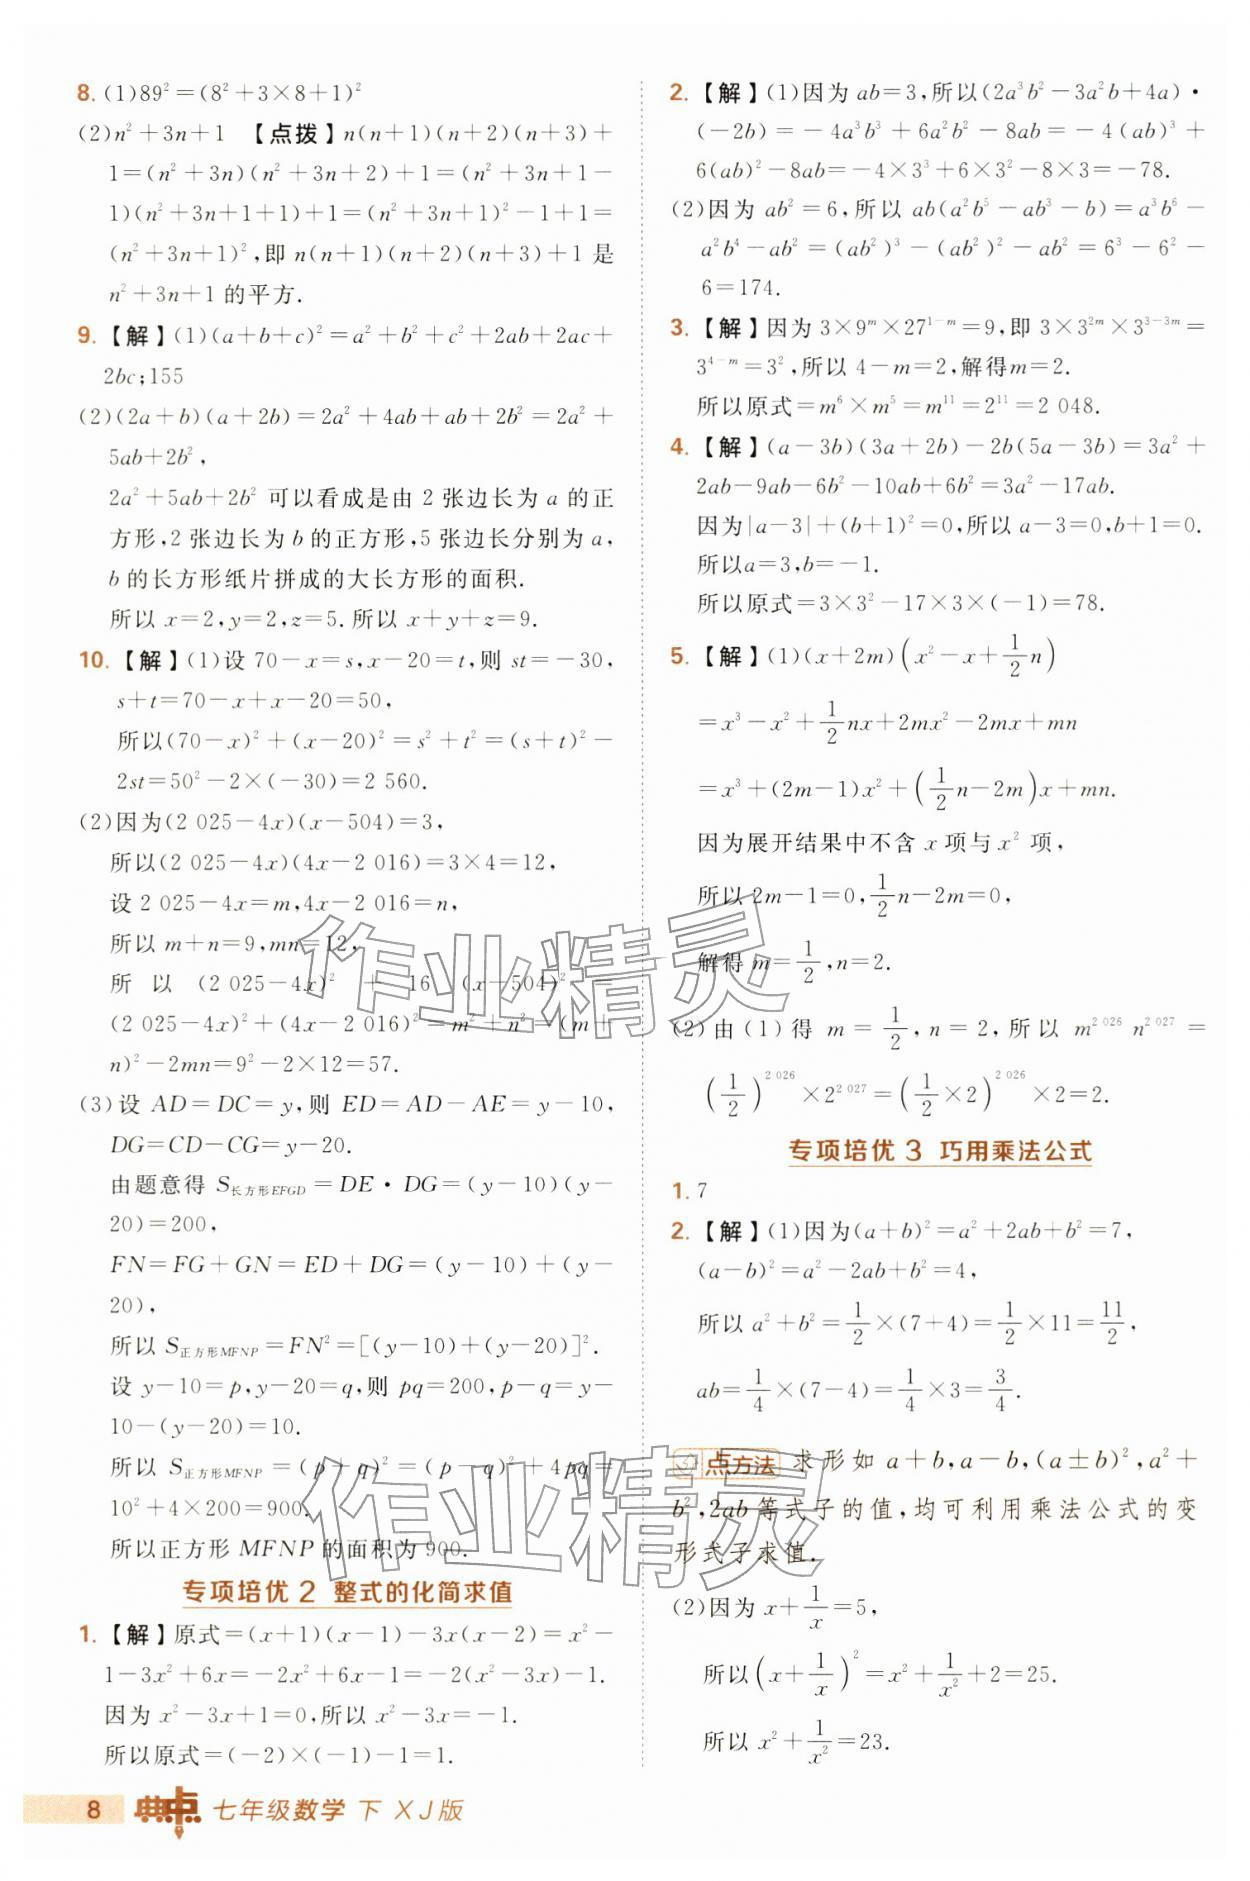 8. (1)89²=(8²+3×8+1)²
(2)n²+3n+1 【点拨】n(n+1)(n+2)(n+3)+
1=(n²+3n)(n²+3n+2)+1=(n²+3n+1-
1)(n²+3n+1+1)+1=(n²+3n+1)²-1+1=
(n²+3n+1)²,即 n(n+1)(n+2)(n+3)+1 是
n²+3n+1 的平方.
9. 【解】(1)(a+b+c)²=a²+b²+c²+2ab+2ac+
2bc;155
(2)(2a+b)(a+2b)=2a²+4ab+ab+2b²=2a²+
5ab+2b²,
2a²+5ab+2b² 可以看成是由 2 张边长为 a 的正
方形,2 张边长为 b 的正方形,5 张边长分别为 a,
b 的长方形纸片拼成的大长方形的面积.
所以 x=2,y=2,z=5.所以 x+y+z=9.
10. 【解】(1)设 70-x=s,x-20=t,则 st=-30,
s+t=70-x+x-20=50,
所以(70-x)²+(x-20)²=s²+t²=(s+t)²-
2st=50²-2×(-30)=2 560.
(2)因为(2 025-4x)(x-504)=3,
所以(2 025-4x)(4x-2 016)=3×4=12,
设 2 025-4x=m,4x-2 016=n,
所以 m+n=9,mn=12,
所以 (2 025-4x)² + 16 (x-504)² =
(2 025-4x)²+(4x-2 016)²=m²+n²=(m+
n)²-2mn=9²-2×12=57.
(3)设 AD=DC=y,则 ED=AD-AE=y-10,
DG=CD-CG=y-20.
由题意得 S长方形EFGD=DE·DG=(y-10)(y-
20)=200,
FN=FG+GN=ED+DG=(y-10)+(y-
20),
所以 S正方形MFNP=FN²=[(y-10)+(y-20)]².
设 y-10=p,y-20=q,则 pq=200,p-q=y-
10-(y-20)=10.
所以 S正方形MFNP=(p+q)²=(p-q)²+4pq=
10²+4×200=900.
所以正方形 MFNP 的面积为 900.
专项培优 2 整式的化简求值
1. 【解】原式=(x+1)(x-1)-3x(x-2)=x²-
1-3x²+6x=-2x²+6x-1=-2(x²-3x)-1.
因为 x²-3x+1=0,所以 x²-3x=-1.
所以原式=(-2)×(-1)-1=1.
2. 【解】(1)因为 ab=3,所以(2a³b²-3a²b+4a)·
(-2b)=-4a³b³+6a²b²-8ab=-4(ab)³+
6(ab)²-8ab=-4×3³+6×3²-8×3=-78.
(2)因为 ab²=6,所以 ab(a²b⁵-ab³-b)=a³b⁶-
a²b⁴-ab²=(ab²)³-(ab²)²-ab²=6³-6²-
6=174.
3. 【解】因为 3×9ᵐ×27¹⁻ᵐ=9,即 3×3²ᵐ×3³⁻³ᵐ=
3⁴⁻ᵐ=3²,所以 4-m=2,解得m=2.
所以原式=m⁶×m⁵=m¹¹=2¹¹=2 048.
4. 【解】(a-3b)(3a+2b)-2b(5a-3b)=3a²+
2ab-9ab-6b²-10ab+6b²=3a²-17ab.
因为|a-3|+(b+1)²=0,所以 a-3=0,b+1=0.
所以a=3,b=-1.
所以原式=3×3²-17×3×(-1)=78.
5. 【解】(1)(x+2m)(x²-x+1/2 n)
=x³-x²+1/2 nx+2mx²-2mx+mn
=x³+(2m-1)x²+(1/2 n-2m)x+mn.
因为展开结果中不含 x 项与 x² 项,
所以 2m-1=0,1/2 n-2m=0,
解得 m=1/2,n=2.
(2)由(1)得 m=1/2,n=2,所以 m²⁰²⁶ n²⁰²⁷=
(1/2)²⁰²⁶×2²⁰²⁷=(1/2×2)²⁰²⁶×2=2.
专项培优 3 巧用乘法公式
1. 7
2. 【解】(1)因为(a+b)²=a²+2ab+b²=7,
(a-b)²=a²-2ab+b²=4,
所以 a²+b²=1/2×(7+4)=1/2×11=11/2,
ab=1/4×(7-4)=1/4×3=3/4.
点方法 求形如 a+b,a-b,(a±b)²,a²+
b²,2ab 等式子的值,均可利用乘法公式的变
形式子求值.
(2)因为 x+1/x=5,
所以(x+1/x)²=x²+1/x²+2=25.
所以 x²+1/x²=23.
8 典中点 七年级数学 下 XJ版
作业精灵
作业精灵